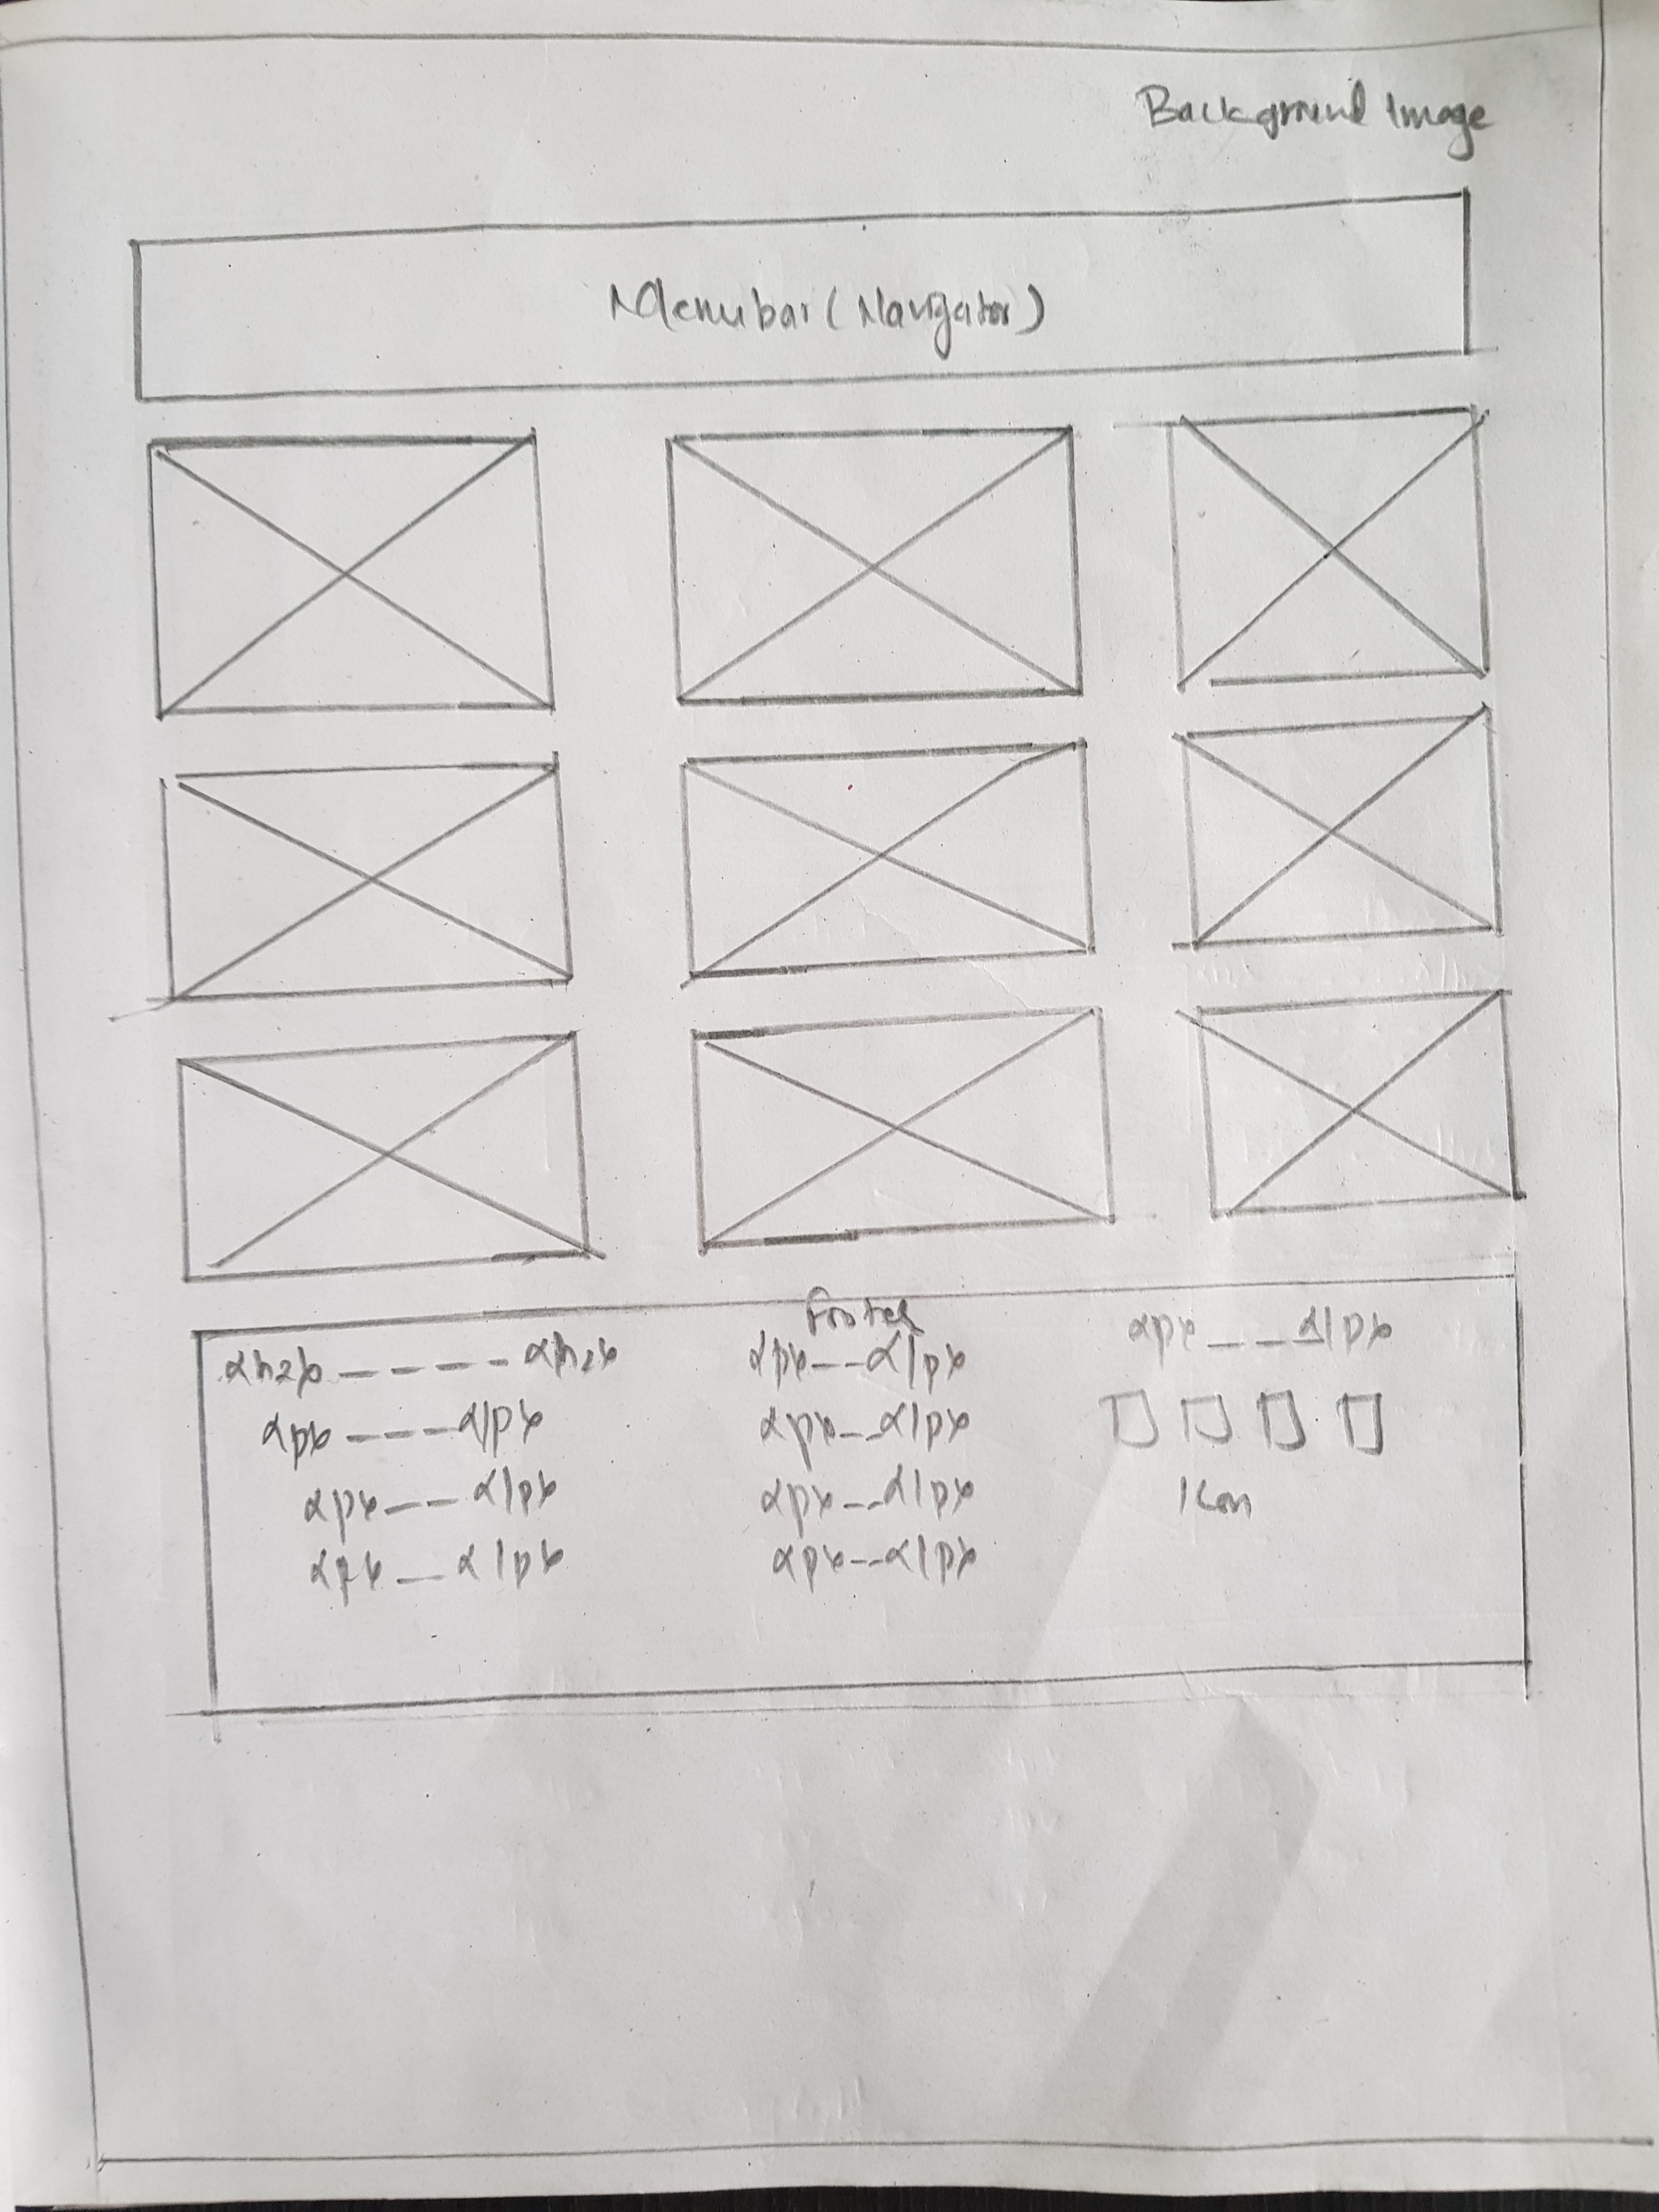 Background Image
Menubar (Navigator)
Footer
<h2> - - - - <h2>
<p> - - - </p>
<p> - - </p>
<p> - </p>
<p> - - </p>
<p> - - </p>
<p> - - </p>
<p> - - </p>
<p> - - </p>
Icon